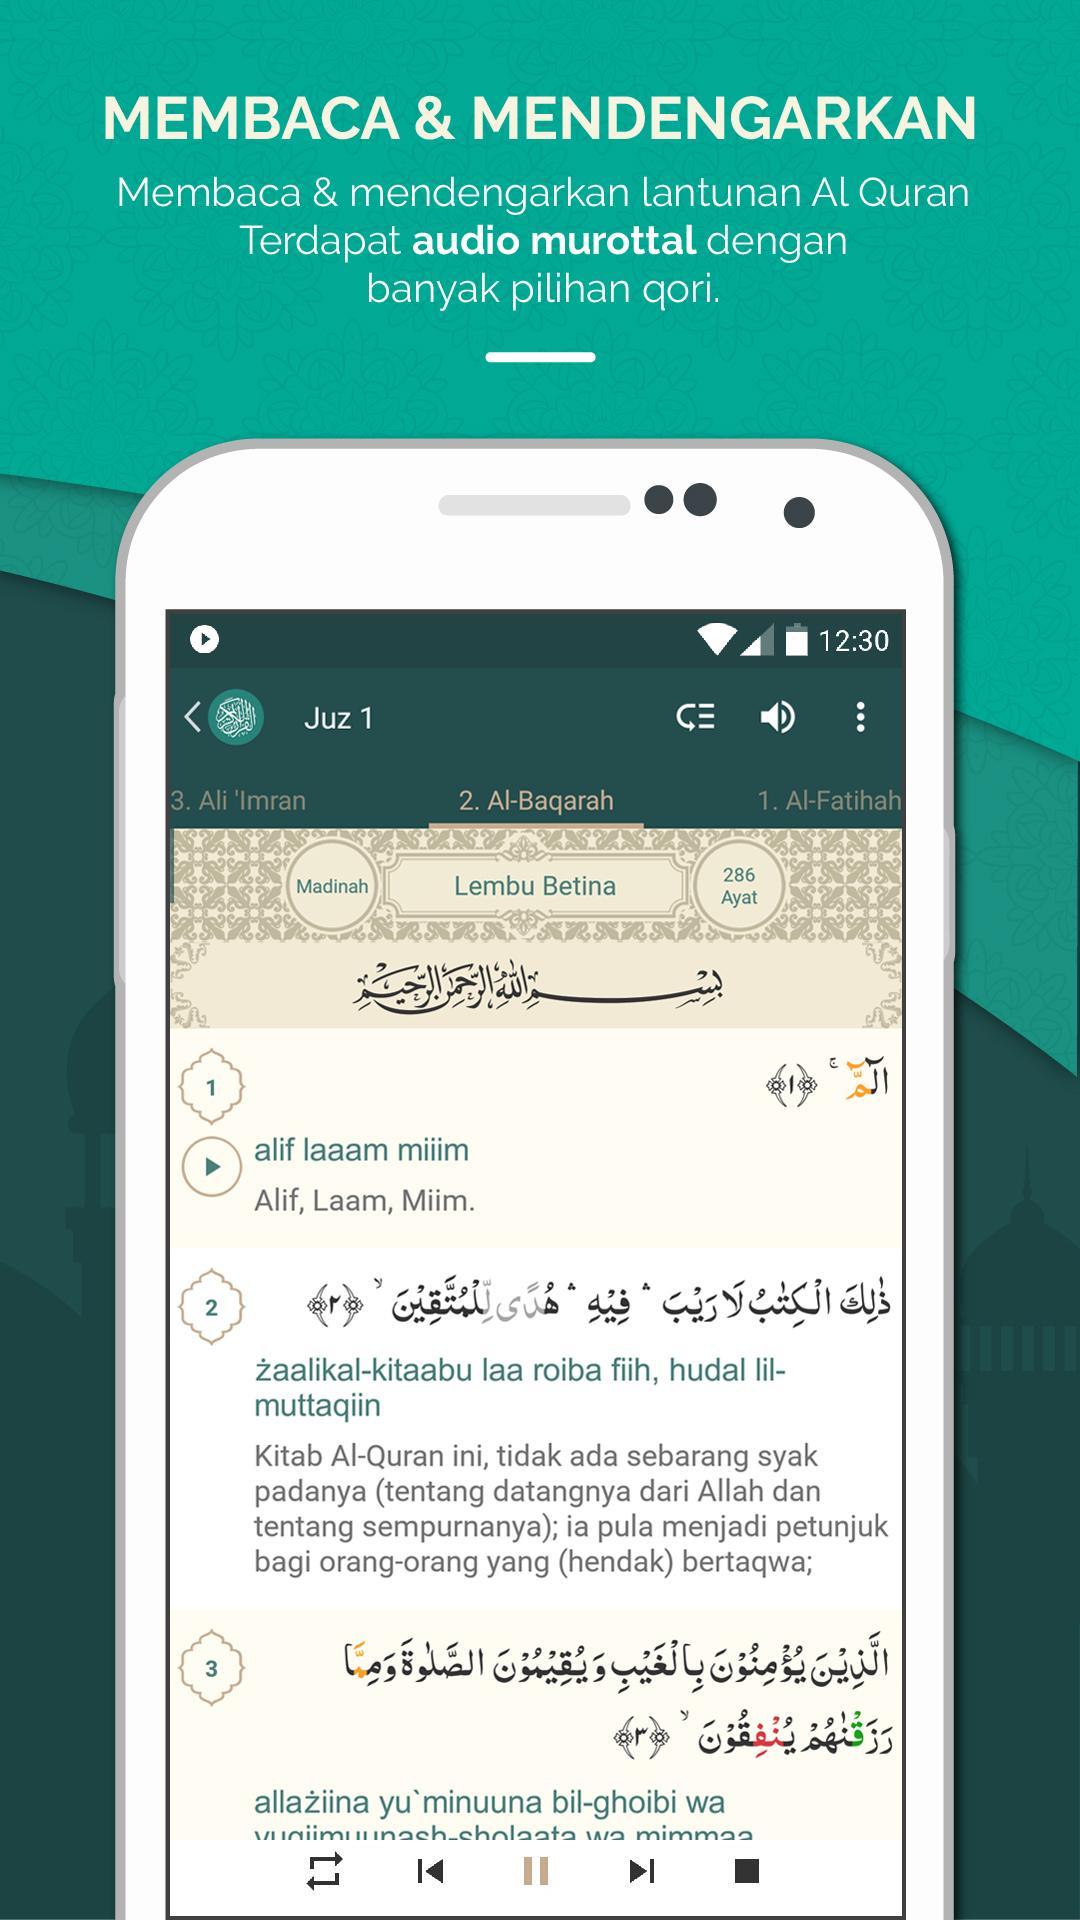 MEMBACA & MENDENGARKAN
Membaca & mendengarkan lantunan Al Quran
Terdapat audio murottal dengan
banyak pilihan qori.
12:30
Juz 1
3. Ali 'Imran
2. Al-Baqarah
1. Al-Fatihah
Madinah
Lembu Betina
286
Ayat
بِسْمِ اللّٰهِ الرَّحْمٰنِ الرَّحِيْمِ
1
الٓمّٓ ۚ ﴿١﴾
alif laaam miiim
Alif, Laam, Miim.
2
ذٰلِكَ الْكِتٰبُ لَا رَيْبَ ۛ فِيْهِ ۛ هُدًى لِّلْمُتَّقِيْنَ ۙ ﴿٢﴾
żaalikal-kitaabu laa roiba fiih, hudal lil-
muttaqiin
Kitab Al-Quran ini, tidak ada sebarang syak
padanya (tentang datangnya dari Allah dan
tentang sempurnanya); ia pula menjadi petunjuk
bagi orang-orang yang (hendak) bertaqwa;
3
الَّذِيْنَ يُؤْمِنُوْنَ بِالْغَيْبِ وَيُقِيْمُوْنَ الصَّلٰوةَ وَمِمَّا
رَزَقْنٰهُمْ يُنْفِقُوْنَ ۙ ﴿٣﴾
allażiina yu`minuuna bil-ghoibi wa
yuqiimuunash-sholaata wa mimmaa